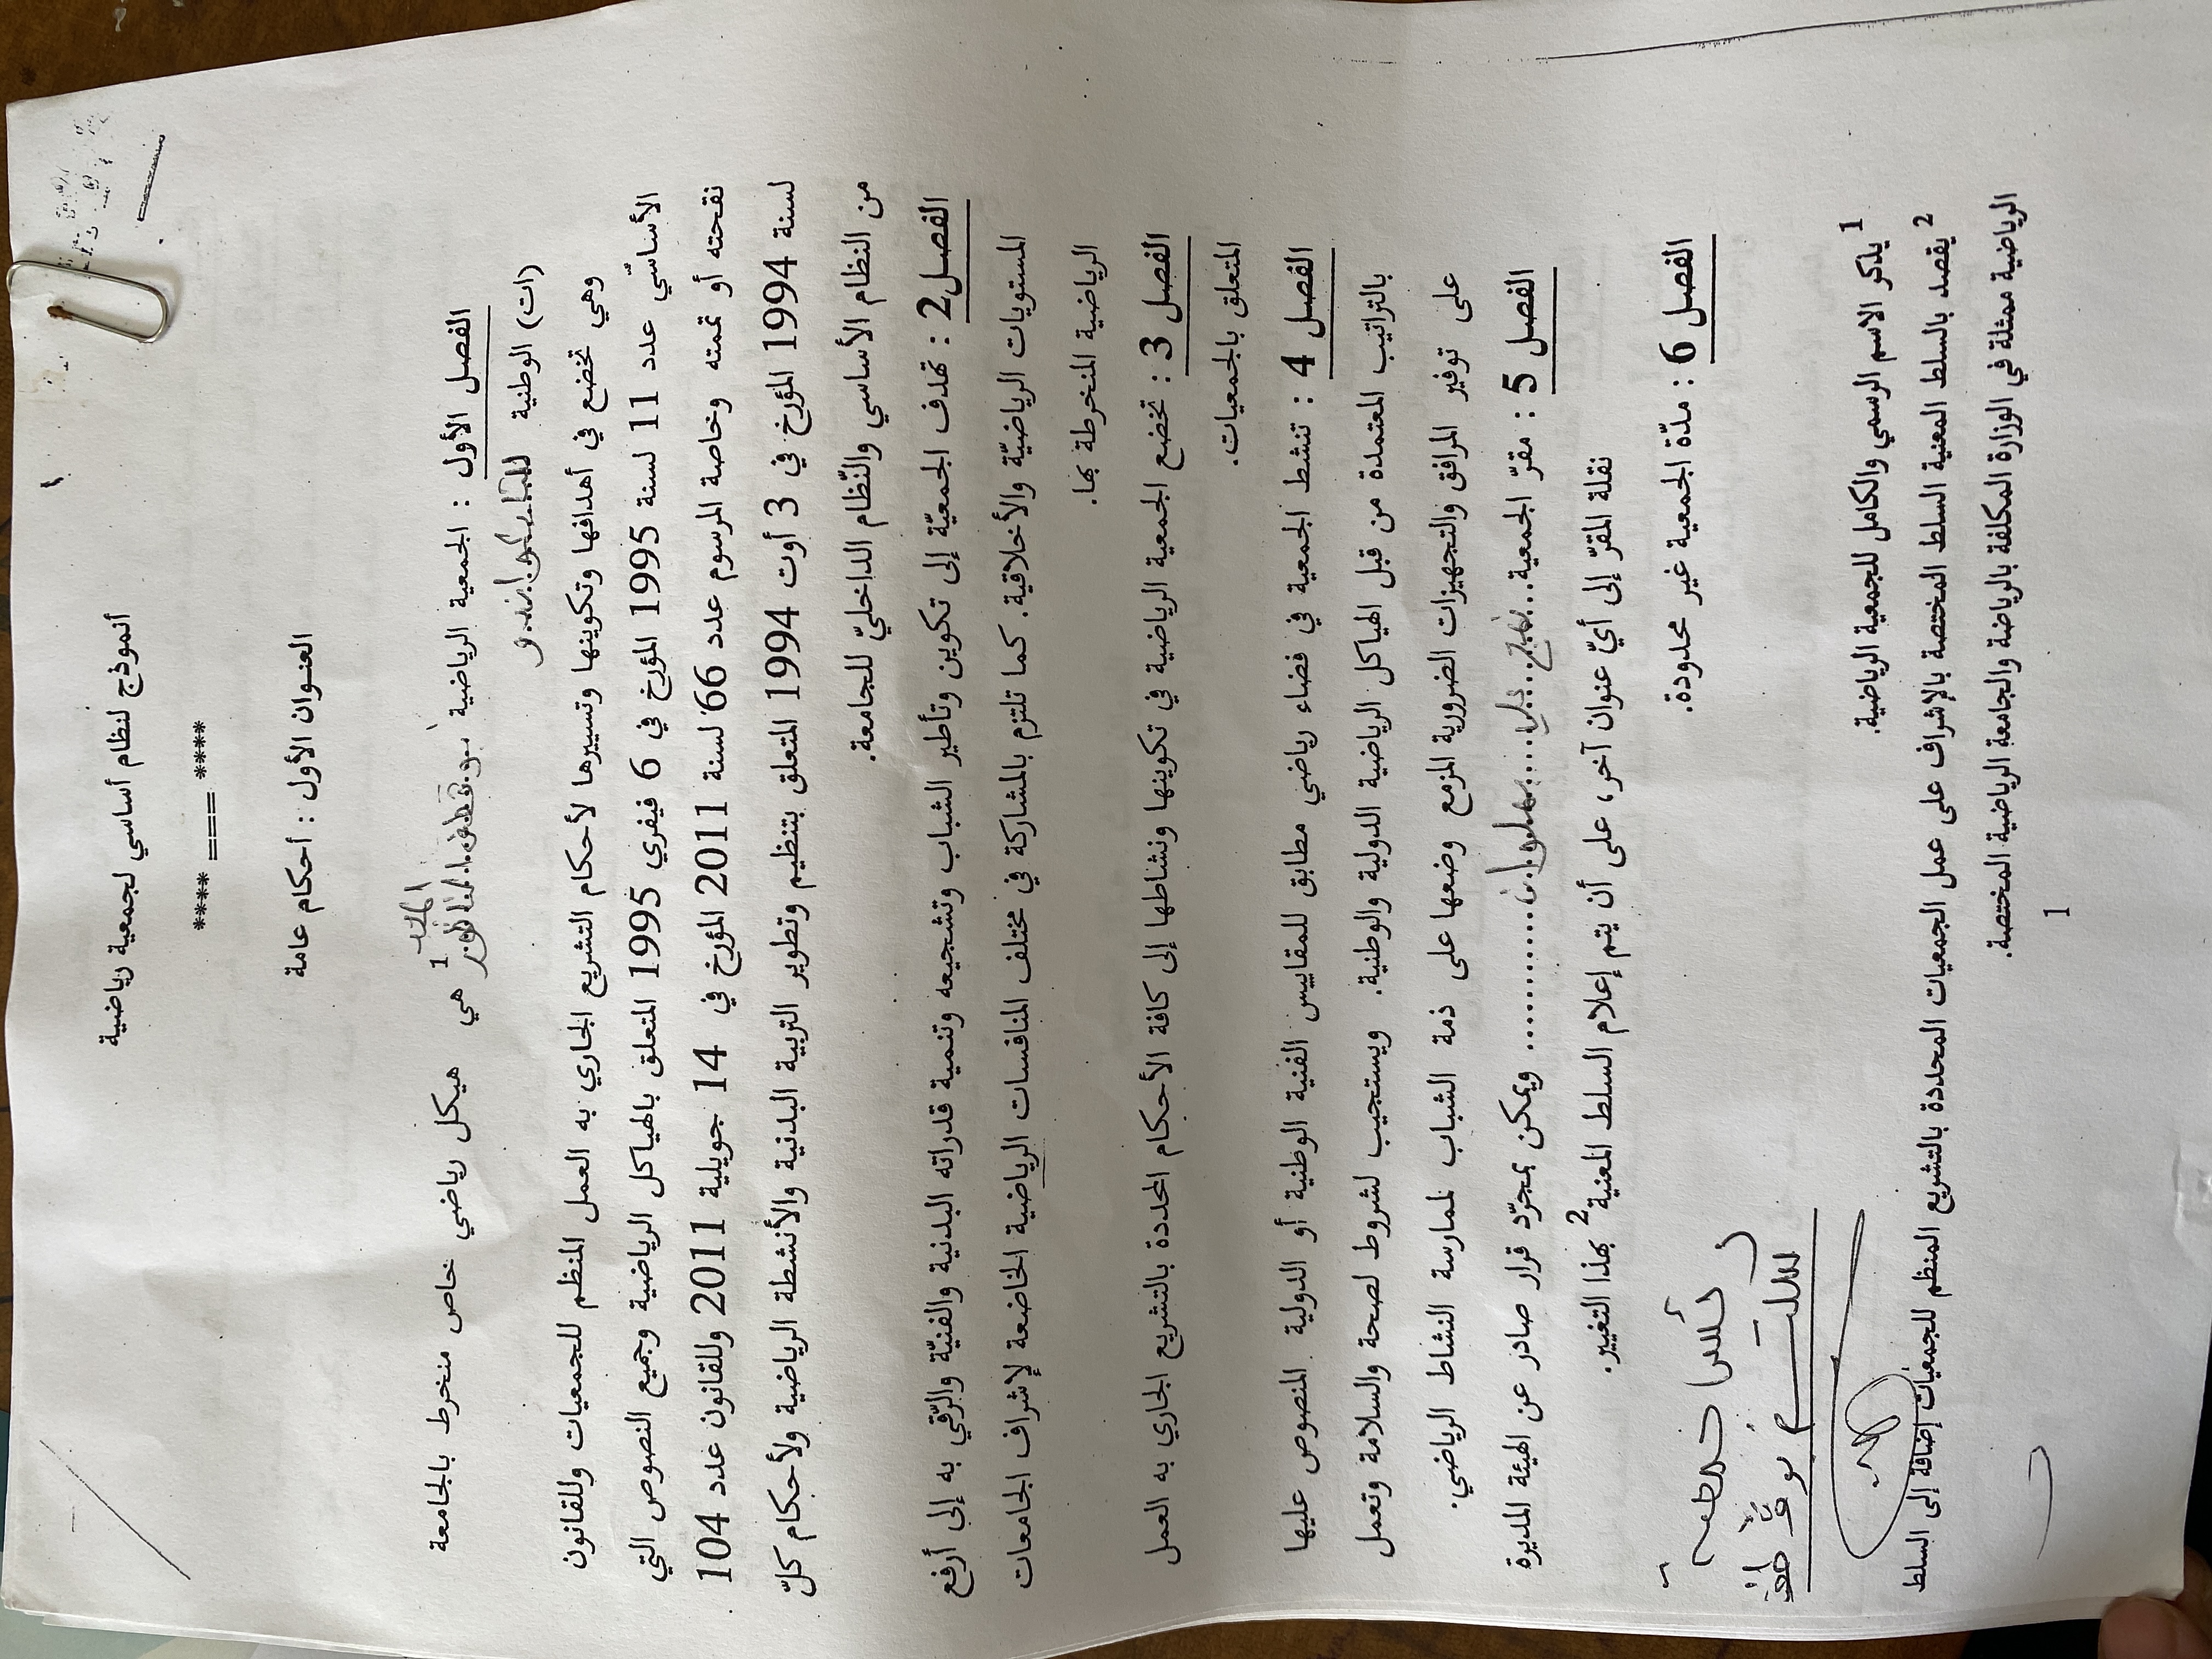 أنموذج لنظام أساسي لجمعية رياضية
**** === ****
العنوان الأول : أحكام عامة
الفصل الأول : الجمعية الرياضية 1 هي هيكل رياضي خاص منخرط بالجامعة
(ات) الوطنية
وهي تخضع في أهدافها وتكوينها وتسييرها لأحكام التشريع الجاري به العمل المنظم للجمعيات وللقانون
الأساسّي عدد 11 لسنة 1995 المؤرخ في 6 فيفري 1995 المتعلق بالهياكل الرياضية وجميع النصوص التي
نقحته أو تممته وخاصة المرسوم عدد 66 لسنة 2011 المؤرخ في 14 جويلية 2011 وللقانون عدد 104
لسنة 1994 المؤرخ في 3 أوت 1994 المتعلق بتنظيم وتطوير التربية البدنية والأنشطة الرياضية ولأحكام كلّ
من النظام الأساسي والنّظام الداخليّ للجامعة.
الفصل 2 : تهدف الجمعيّة إلى تكوين وتأطير الشباب وتشجيعه وتنمية قدراته البدنية والفنيّة والرّقي به إلى أرفع
المستويات الرياضيّة والأخلاقية. كما تلتزم بالمشاركة في مختلف المنافسات الرياضية الخاضعة لإشراف الجامعات
الرياضية المنخرطة بها.
الفصل 3 : تخضع الجمعية الرياضية في تكوينها ونشاطها إلى كافة الأحكام المحددة بالتشريع الجاري به العمل
المتعلق بالجمعيات.
الفصل 4 : تنشط الجمعية في فضاء رياضي مطابق للمقاييس الفنية الوطنية أو الدولية المنصوص عليها
بالتراتيب المعتمدة من قبل الهياكل الرياضية الدولية والوطنية. ويستجيب لشروط لصحة والسلامة وتعمل
على توفير المرافق والتجهيزات الضرورية المزمع وضعها على ذمة الشباب لممارسة النشاط الرياضي.
الفصل 5 : مقرّ الجمعية ............ ويمكن بمجرّد قرار صادر عن الهيئة المديرة
نقلة المقرّ إلى أيّ عنوان آخر، على أن يتم إعلام السلط المعنية 2 بهذا التغيير.
الفصل 6 : مدّة الجمعية غير محدودة.
1 يذكر الاسم الرسمي والكامل للجمعية الرياضية.
2 يقصد بالسلط المعنية السلط المختصة بالإشراف على عمل الجمعيات المحددة بالتشريع المنظم للجمعيات إضافة إلى السلط
الرياضية ممثلة في الوزارة المكلفة بالرياضة والجامعة الرياضية المختصة.
1